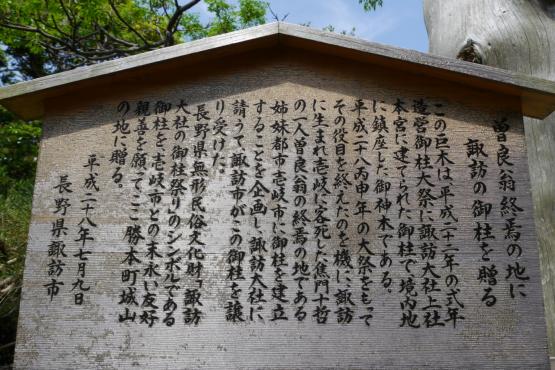 曽良翁終焉の地に
諏訪の御柱を贈る
この巨木は、平成二十二年の式年
造営御柱大祭に諏訪大社上社
本宮に建てられた御柱で境内地
に鎮座した御神木である。
平成二十八丙申年の大祭をもって
その役目を終えたのを機に、諏訪
に生まれ壱岐に客死した蕉門十哲
の一人曽良翁の終焉の地である
姉妹都市壱岐市に御柱を建立
することを企画し、諏訪大社に
請うて、諏訪市がこの御柱を譲
り受けた。
長野県無形民俗文化財「諏訪
大社の御柱祭り」のシンボルである
御柱を壱岐市との末永い友好
親善を願って、ここ勝本町城山
の地に贈る。
平成二十八年七月九日
長野県諏訪市